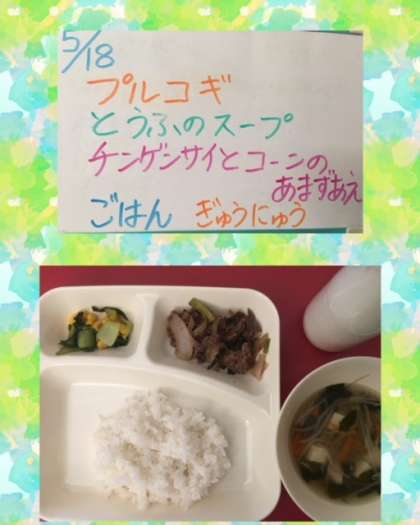 5/18
プルコギ
とうふのスープ
チンゲンサイとコーンの
あまずあえ
ごはん ぎゅうにゅう